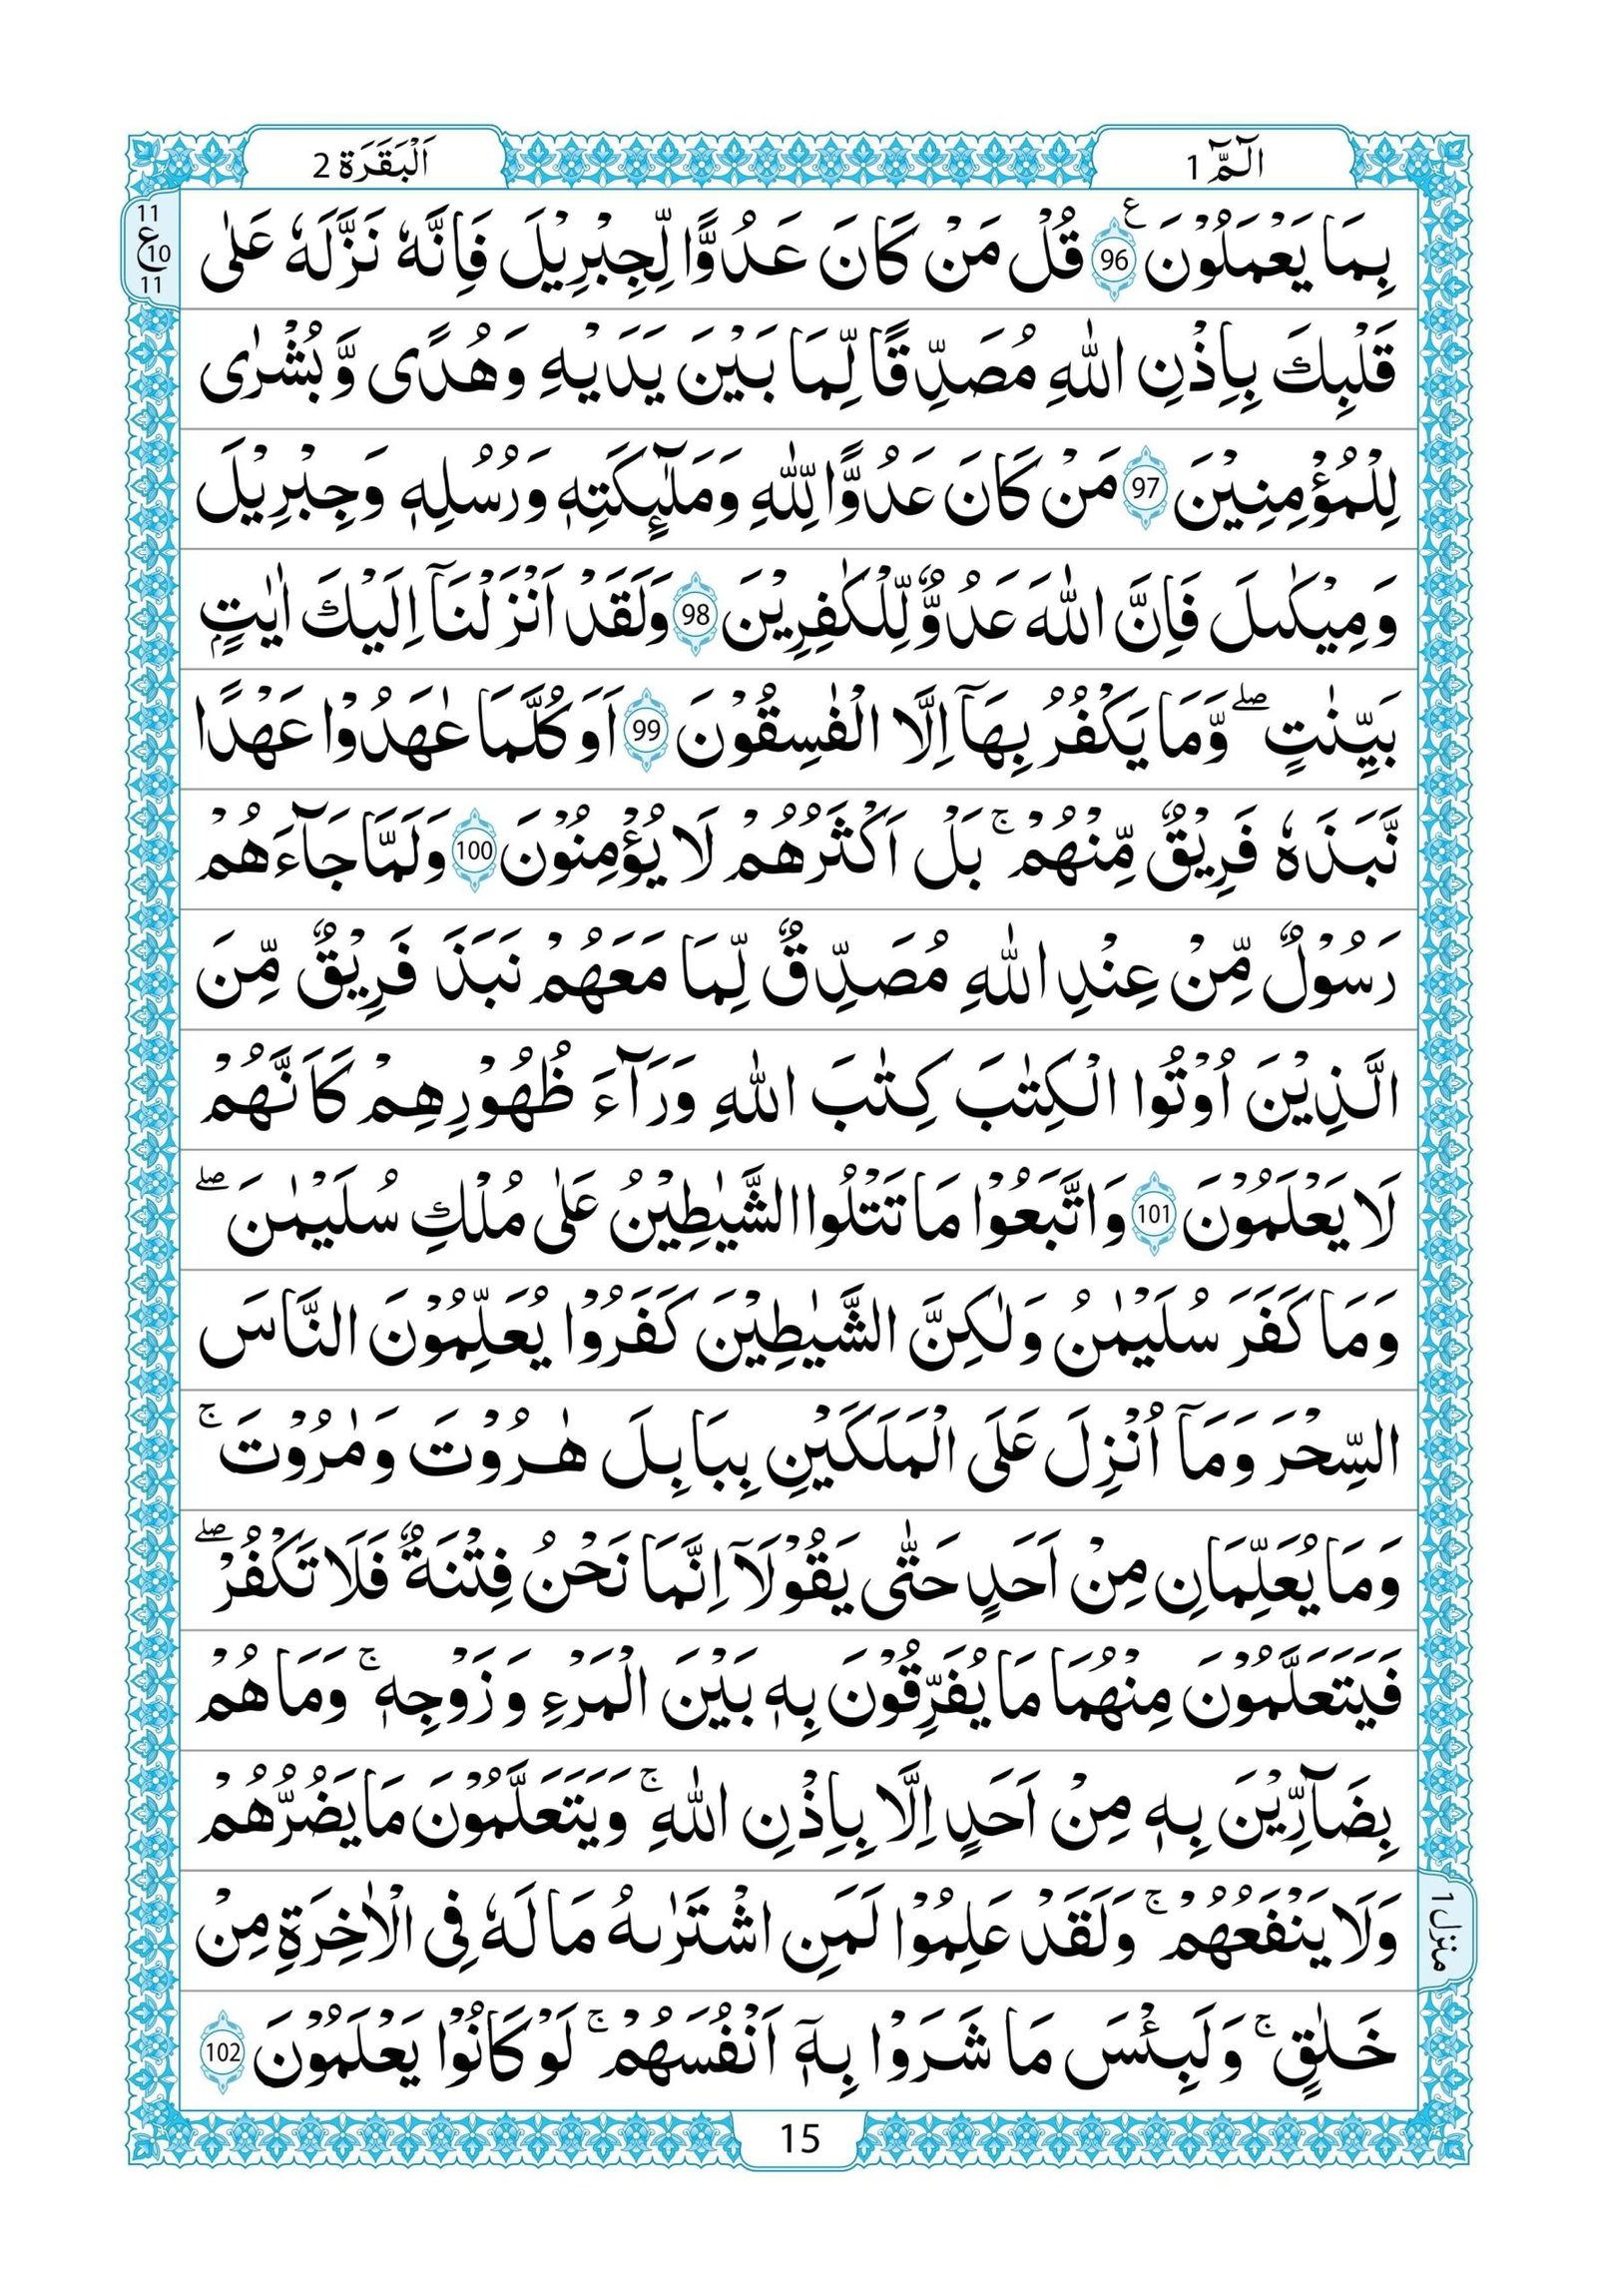 الٓمّٓ 1
اَلْبَقَرَة 2
بِمَا يَعْمَلُوْنَ ۧ 96 قُلْ مَنْ كَانَ عَدُوًّا لِّجِبْرِيْلَ فَاِنَّهٗ نَزَّلَهٗ عَلٰى
11
ع 10
11
قَلْبِكَ بِاِذْنِ اللّٰهِ مُصَدِّقًا لِّمَا بَيْنَ يَدَيْهِ وَهُدًى وَّبُشْرٰى
لِلْمُؤْمِنِيْنَ 97 مَنْ كَانَ عَدُوًّا لِّلّٰهِ وَمَلٰٓىِٕكَتِهٖ وَرُسُلِهٖ وَجِبْرِيْلَ
وَمِيْكٰىلَ فَاِنَّ اللّٰهَ عَدُوٌّ لِّلْكٰفِرِيْنَ 98 وَلَقَدْ اَنْزَلْنَآ اِلَيْكَ اٰيٰتٍۭ
بَيِّنٰتٍ ۖ وَّمَا يَكْفُرُ بِهَآ اِلَّا الْفٰسِقُوْنَ 99 اَوَكُلَّمَا عٰهَدُوْا عَهْدًا
نَّبَذَهٗ فَرِيْقٌ مِّنْهُمْ ۚ بَلْ اَكْثَرُهُمْ لَا يُؤْمِنُوْنَ 100 وَلَمَّا جَآءَهُمْ
رَسُوْلٌ مِّنْ عِنْدِ اللّٰهِ مُصَدِّقٌ لِّمَا مَعَهُمْ نَبَذَ فَرِيْقٌ مِّنَ
الَّذِيْنَ اُوْتُوا الْكِتٰبَ كِتٰبَ اللّٰهِ وَرَآءَ ظُهُوْرِهِمْ كَاَنَّهُمْ
لَا يَعْلَمُوْنَ 101 وَاتَّبَعُوْا مَا تَتْلُوا الشَّيٰطِيْنُ عَلٰى مُلْكِ سُلَيْمٰنَ ۖ
وَمَا كَفَرَ سُلَيْمٰنُ وَلٰكِنَّ الشَّيٰطِيْنَ كَفَرُوْا يُعَلِّمُوْنَ النَّاسَ
السِّحْرَ وَمَآ اُنْزِلَ عَلَى الْمَلَكَيْنِ بِبَابِلَ هٰرُوْتَ وَمٰرُوْتَ ۚ
وَمَا يُعَلِّمَانِ مِنْ اَحَدٍ حَتّٰى يَقُوْلَآ اِنَّمَا نَحْنُ فِتْنَةٌ فَلَا تَكْفُرْ ۖ
فَيَتَعَلَّمُوْنَ مِنْهُمَا مَا يُفَرِّقُوْنَ بِهٖ بَيْنَ الْمَرْءِ وَزَوْجِهٖ ۚ وَمَا هُمْ
بِضَآرِّيْنَ بِهٖ مِنْ اَحَدٍ اِلَّا بِاِذْنِ اللّٰهِ ۚ وَيَتَعَلَّمُوْنَ مَا يَضُرُّهُمْ
وَلَا يَنْفَعُهُمْ ۚ وَلَقَدْ عَلِمُوْا لَمَنِ اشْتَرٰىهُ مَا لَهٗ فِى الْاٰخِرَةِ مِنْ
منزل 1
خَلٰقٍ ۚ وَلَبِئْسَ مَا شَرَوْا بِهٖٓ اَنْفُسَهُمْ ۚ لَوْ كَانُوْا يَعْلَمُوْنَ 102
15